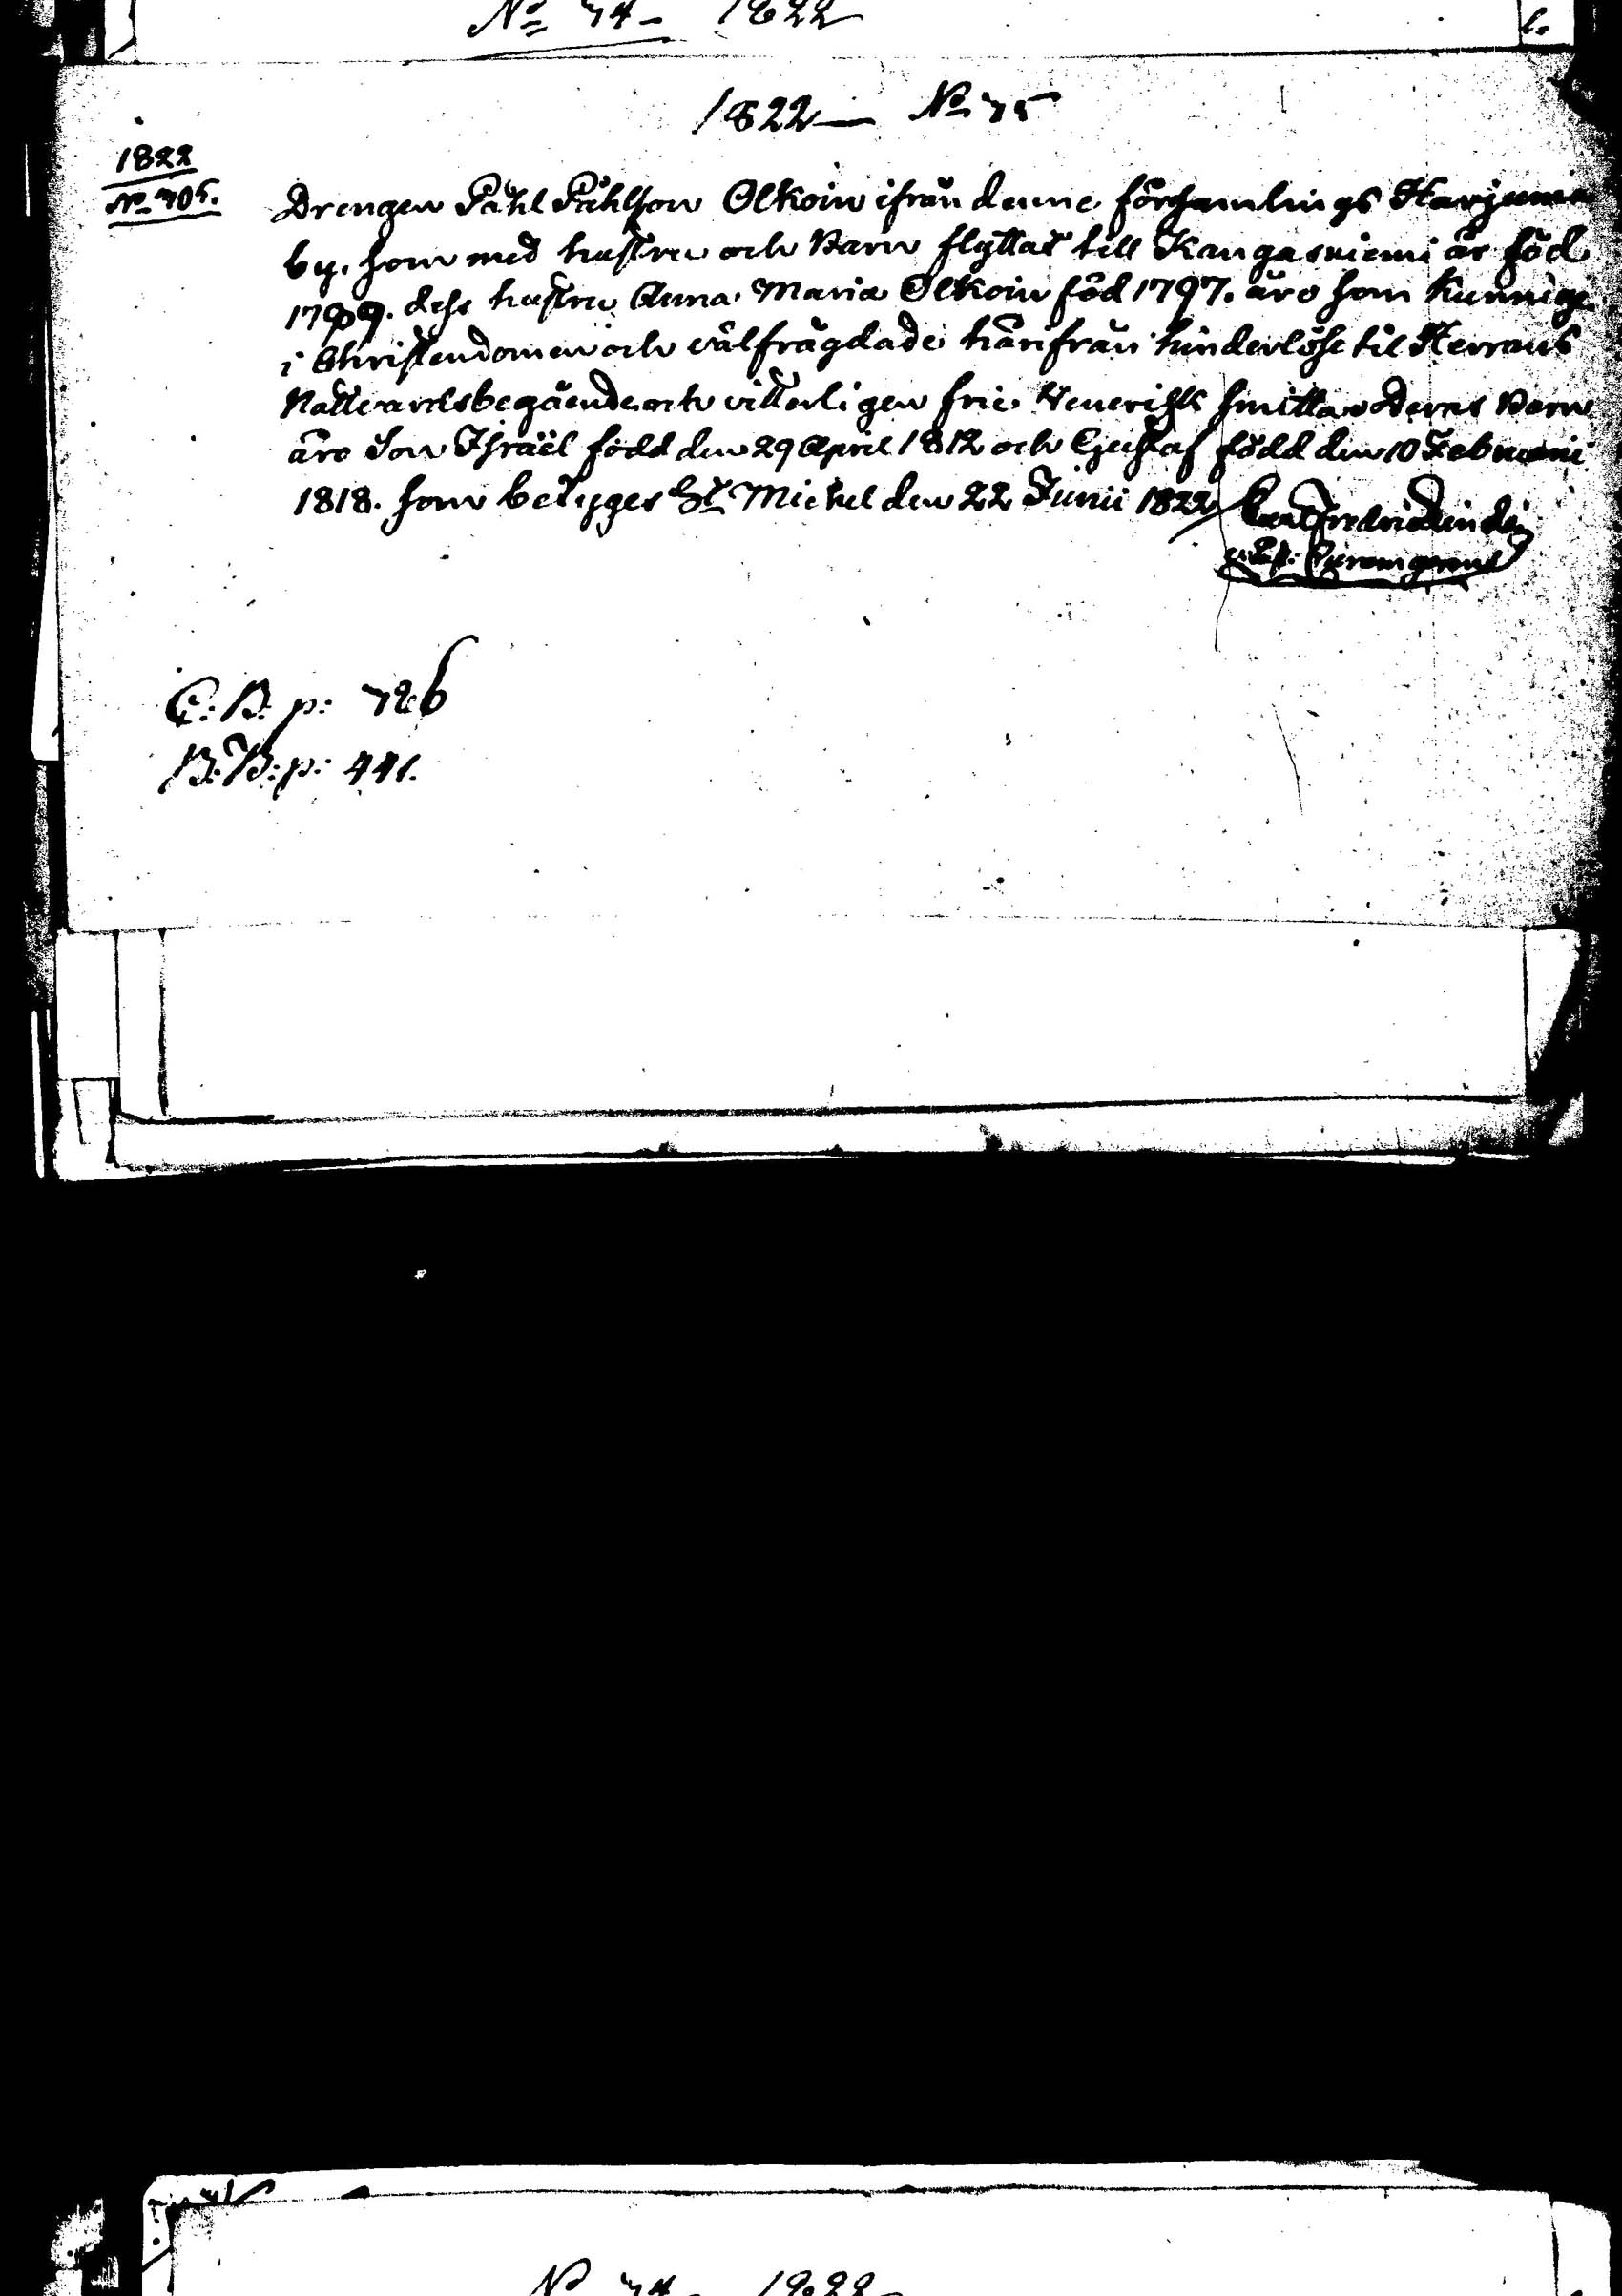 No 74 - 1822
1822 — No 75
1822
No 705.
Drengen Påhl Påhlsson Olkoin ifrån denne församlings Harjuma
by. som med hustru och Barn flyttat till Kangasniemi är föd
1789. dess hustru Anna Maria Olkoin föd 1797. äro som kunnige
i Christendomen och välfrägdade härifrån hinderlöse til Herrans
Nattvardsbegående och vitterligen frie Venerisk smitta deras Barn
äro Son Israël född den 29 April 1812 och Gustaf född den 10 Februarii
1818. som betyges St Michel den 22 Junii 1822
C: B: p: 726
B: B: p: 441.
No 74 - 1822